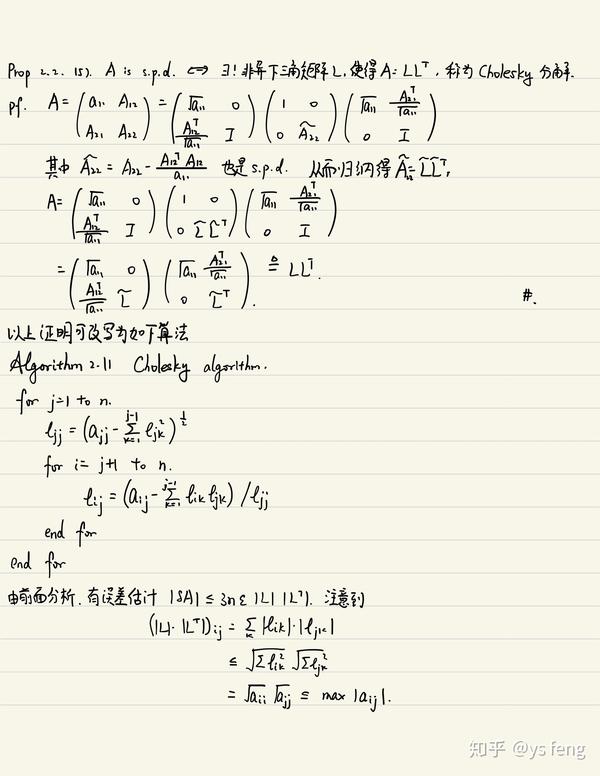 Prop 2.2. (5). A is s.p.d. ⟺ ∃! 非异下三角矩阵 L, 使得 A = LL^T, 称为 Cholesky 分解.
pf. A = ( a₁₁ A₁₂ ; A₂₁ A₂₂ ) = ( √a₁₁ 0 ; A₁₂^T/√a₁₁ I ) ( 1 0 ; 0 Ã₂₂ ) ( √a₁₁ A₂₁^T/√a₁₁ ; 0 I )
其中 Ã₂₂ = A₂₂ - A₁₂^T A₁₂/a₁₁ 也是 s.p.d. 从而归纳得 Ã₂₂ = L̃L̃^T,
A = ( √a₁₁ 0 ; A₁₂^T/√a₁₁ I ) ( 1 0 ; 0 L̃L̃^T ) ( √a₁₁ A₂₁^T/√a₁₁ ; 0 I )
= ( √a₁₁ 0 ; A₁₂^T/√a₁₁ L̃ ) ( √a₁₁ A₂₁^T/√a₁₁ ; 0 L̃^T ) ≜ LL^T. #.
以上证明可改写为如下算法
Algorithm 2.11 Cholesky algorithm.
for j=1 to n.
l_jj = (a_jj - ∑_{k=1}^{j-1} l_jk²)^{1/2}
for i = j+1 to n.
l_ij = (a_ij - ∑_{k=1}^{j-1} l_ik l_jk) / l_jj
end for
end for
由前面分析, 有误差估计 |δA| ≤ 3nε |L| |L^T|. 注意到
(|L|·|L^T|)_ij = ∑_k |l_ik|·|l_jk|
≤ √(∑l_ik²) √(∑l_jk²)
= √a_ii √a_jj ≤ max |a_ij|.
知乎 @ys feng